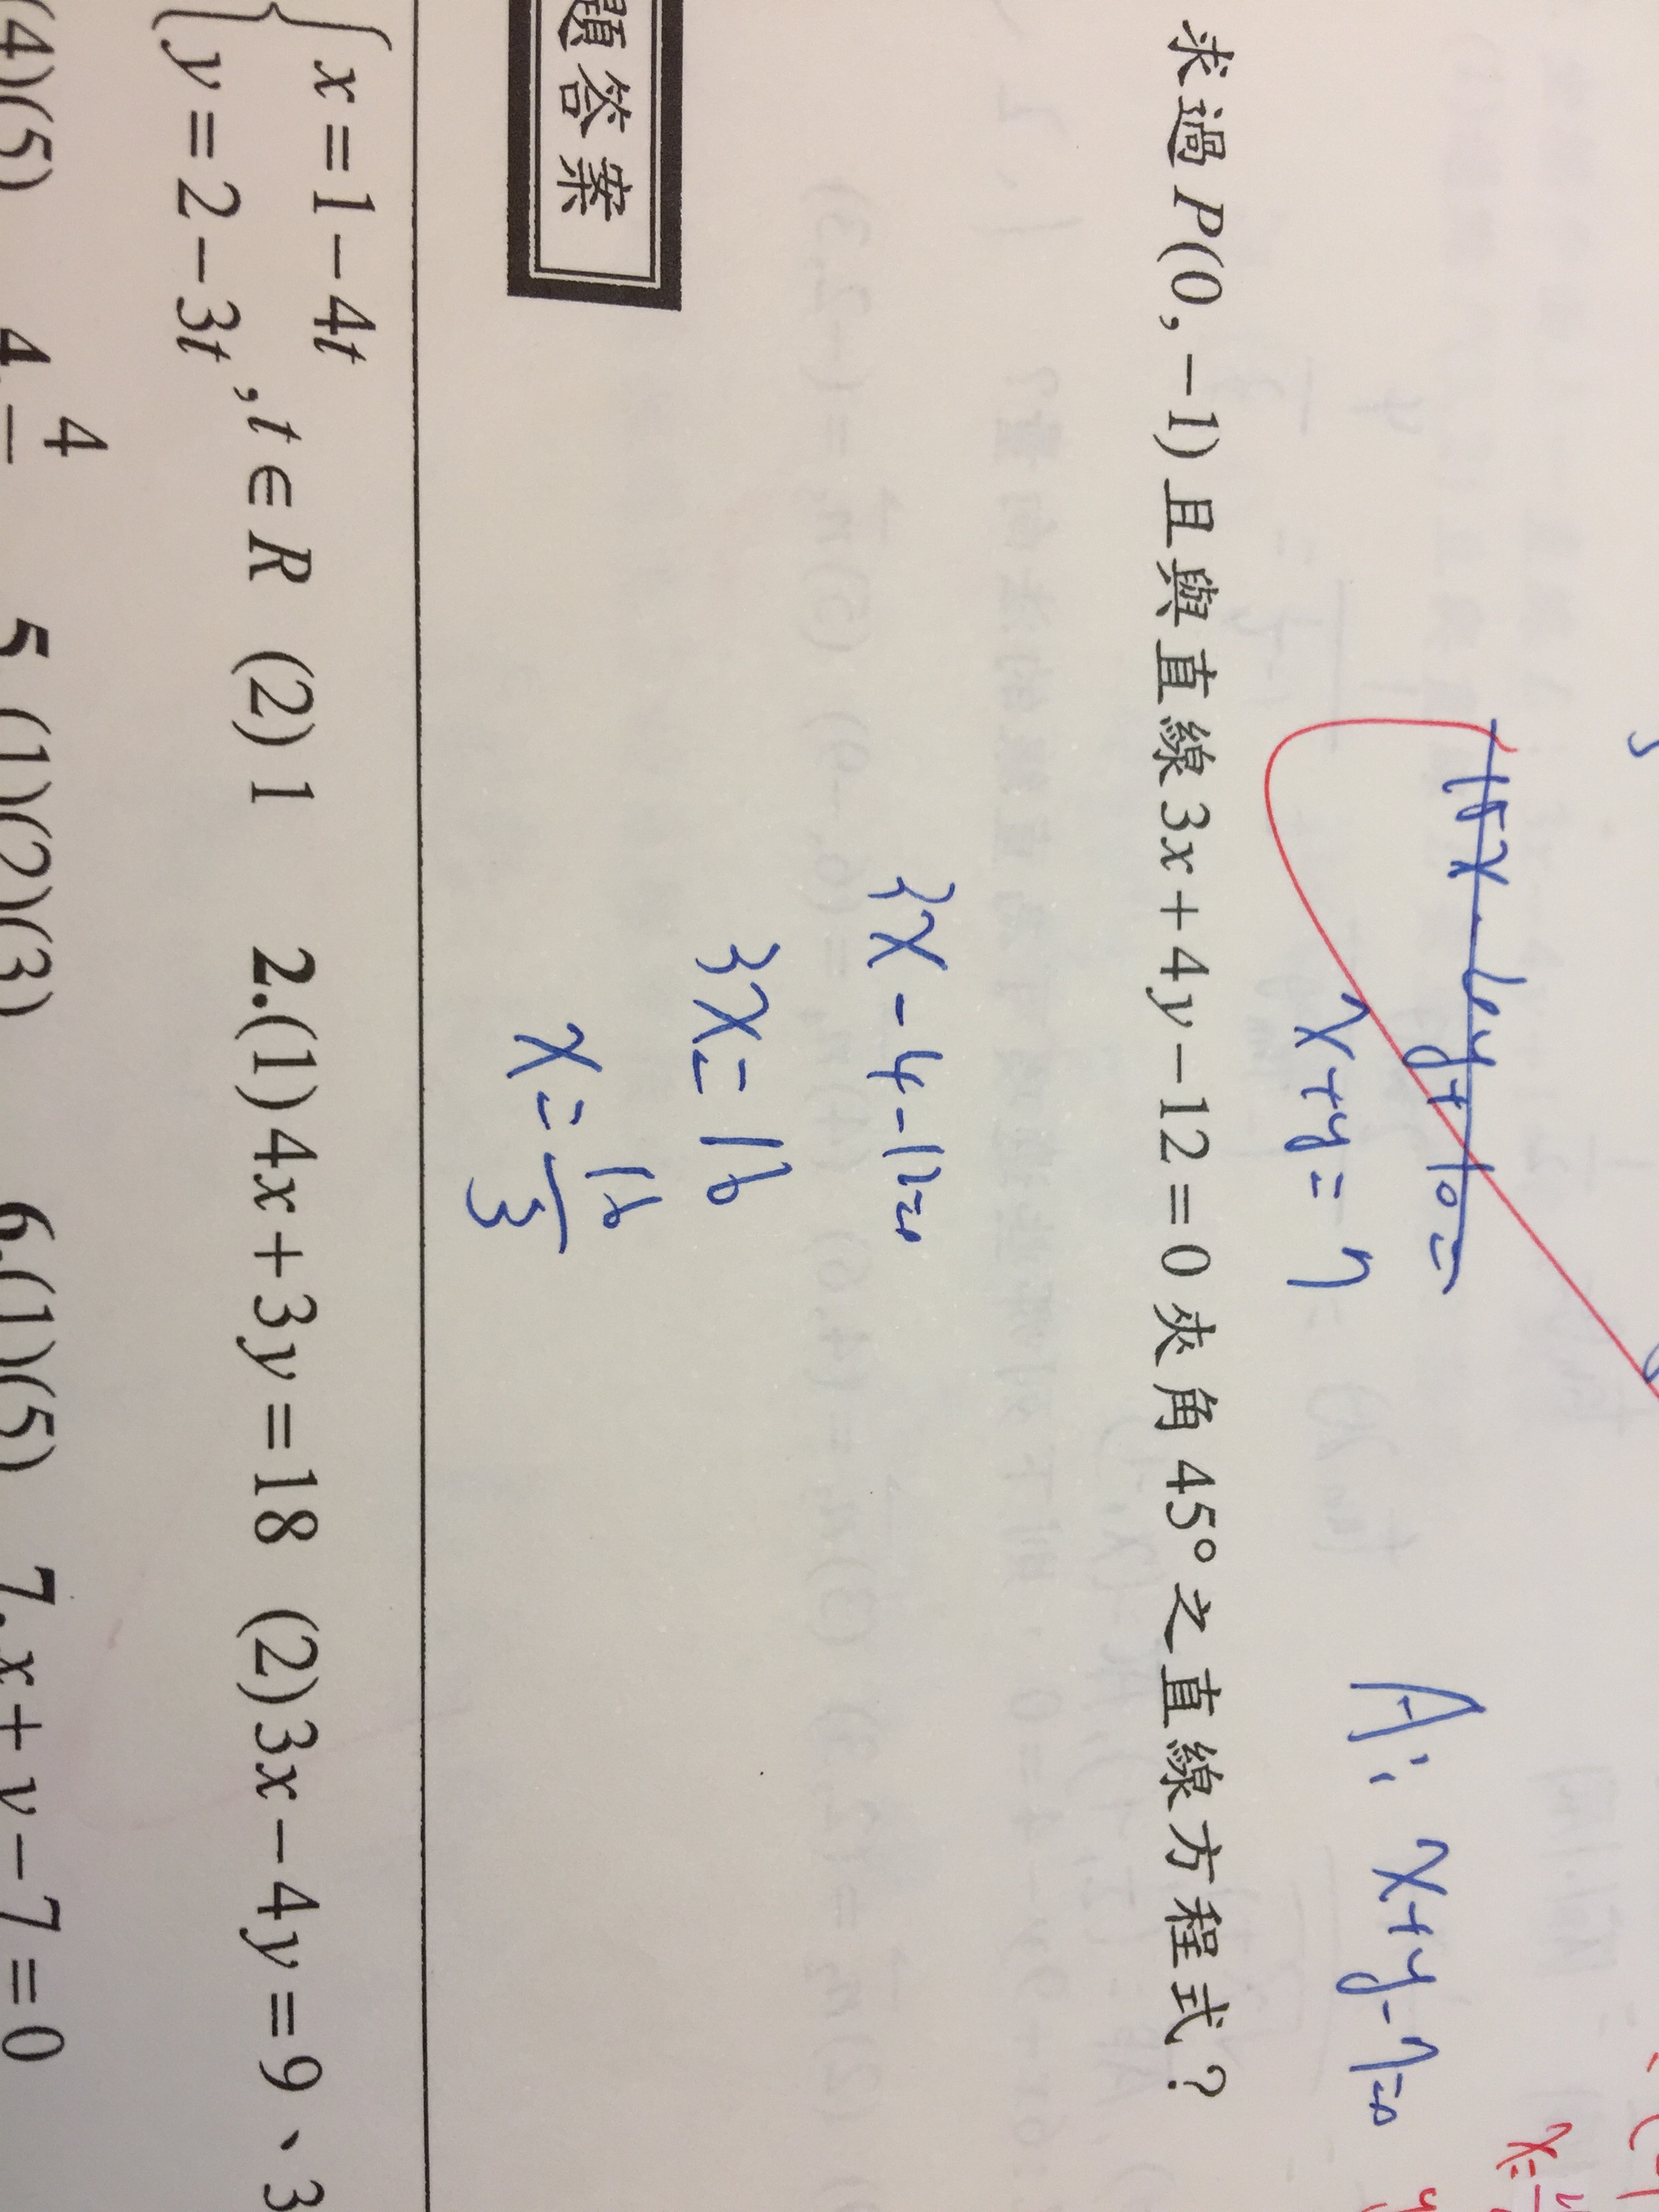 15x-6y+10=
x+y=7
A: x+y-7=0
求過P(0,-1)且與直線3x+4y-12=0夾角45°之直線方程式?
3x-4-12=0
3x=16
x=16/3
題答案
x=1-4t
y=2-3t ,t∈R (2)1 2.(1)4x+3y=18 (2)3x-4y=9、3
(4)(5) 4. 4 5.(1)(2)(3) 6.(1)(5) 7.x+y-7=0